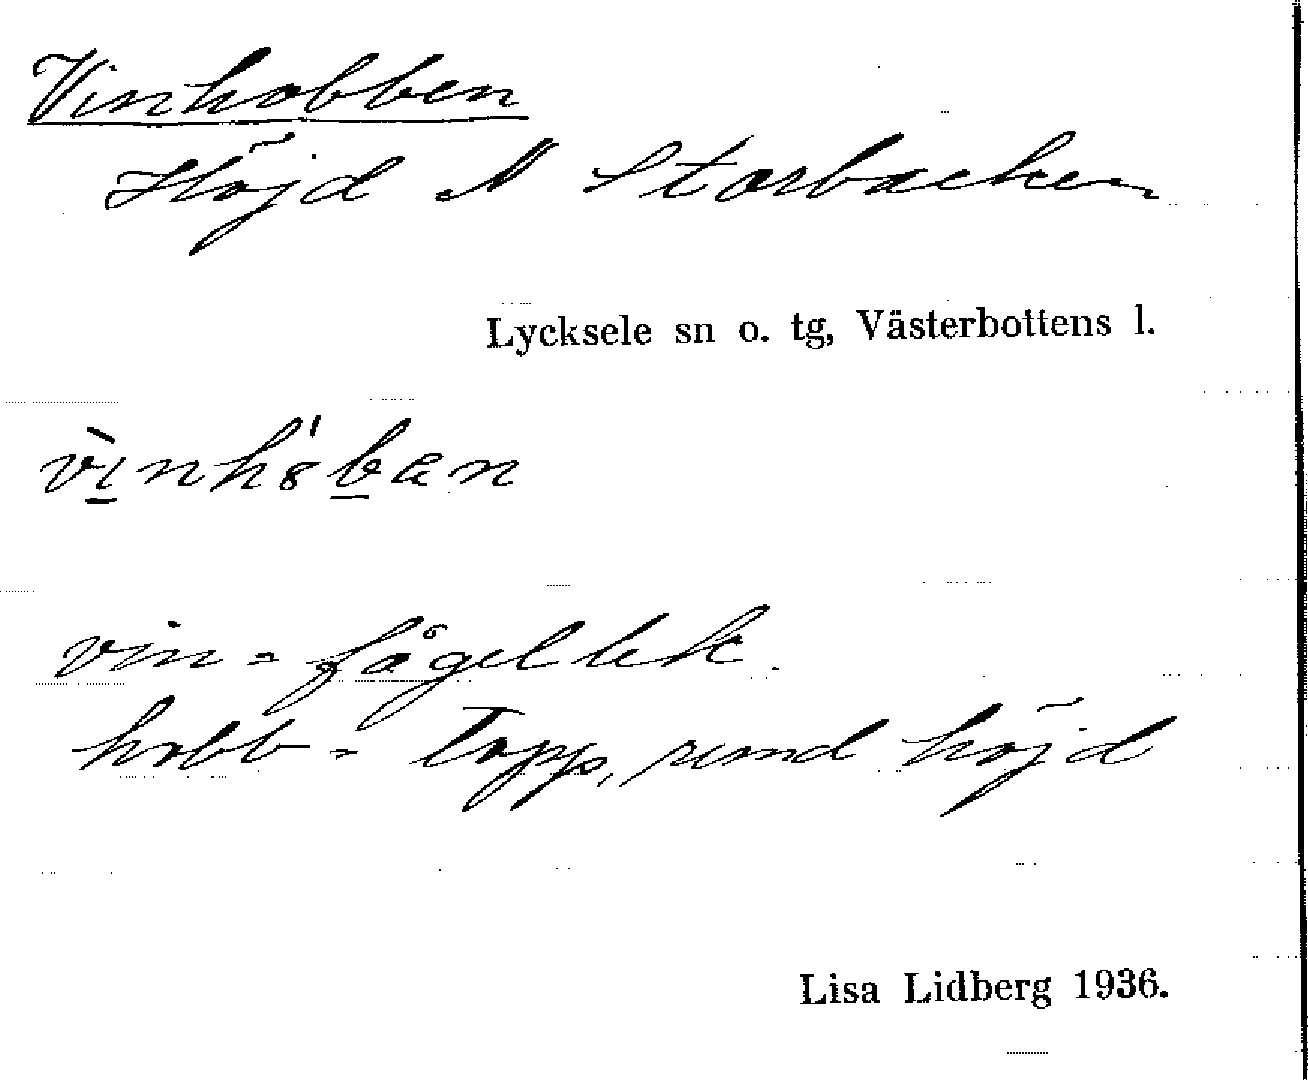 Vinhobben
Höjd N Storbacken
Lycksele sn o. tg, Västerbottens l.
vin = fågellek.
hobb = Topp, rund höjd
Lisa Lidberg 1936.